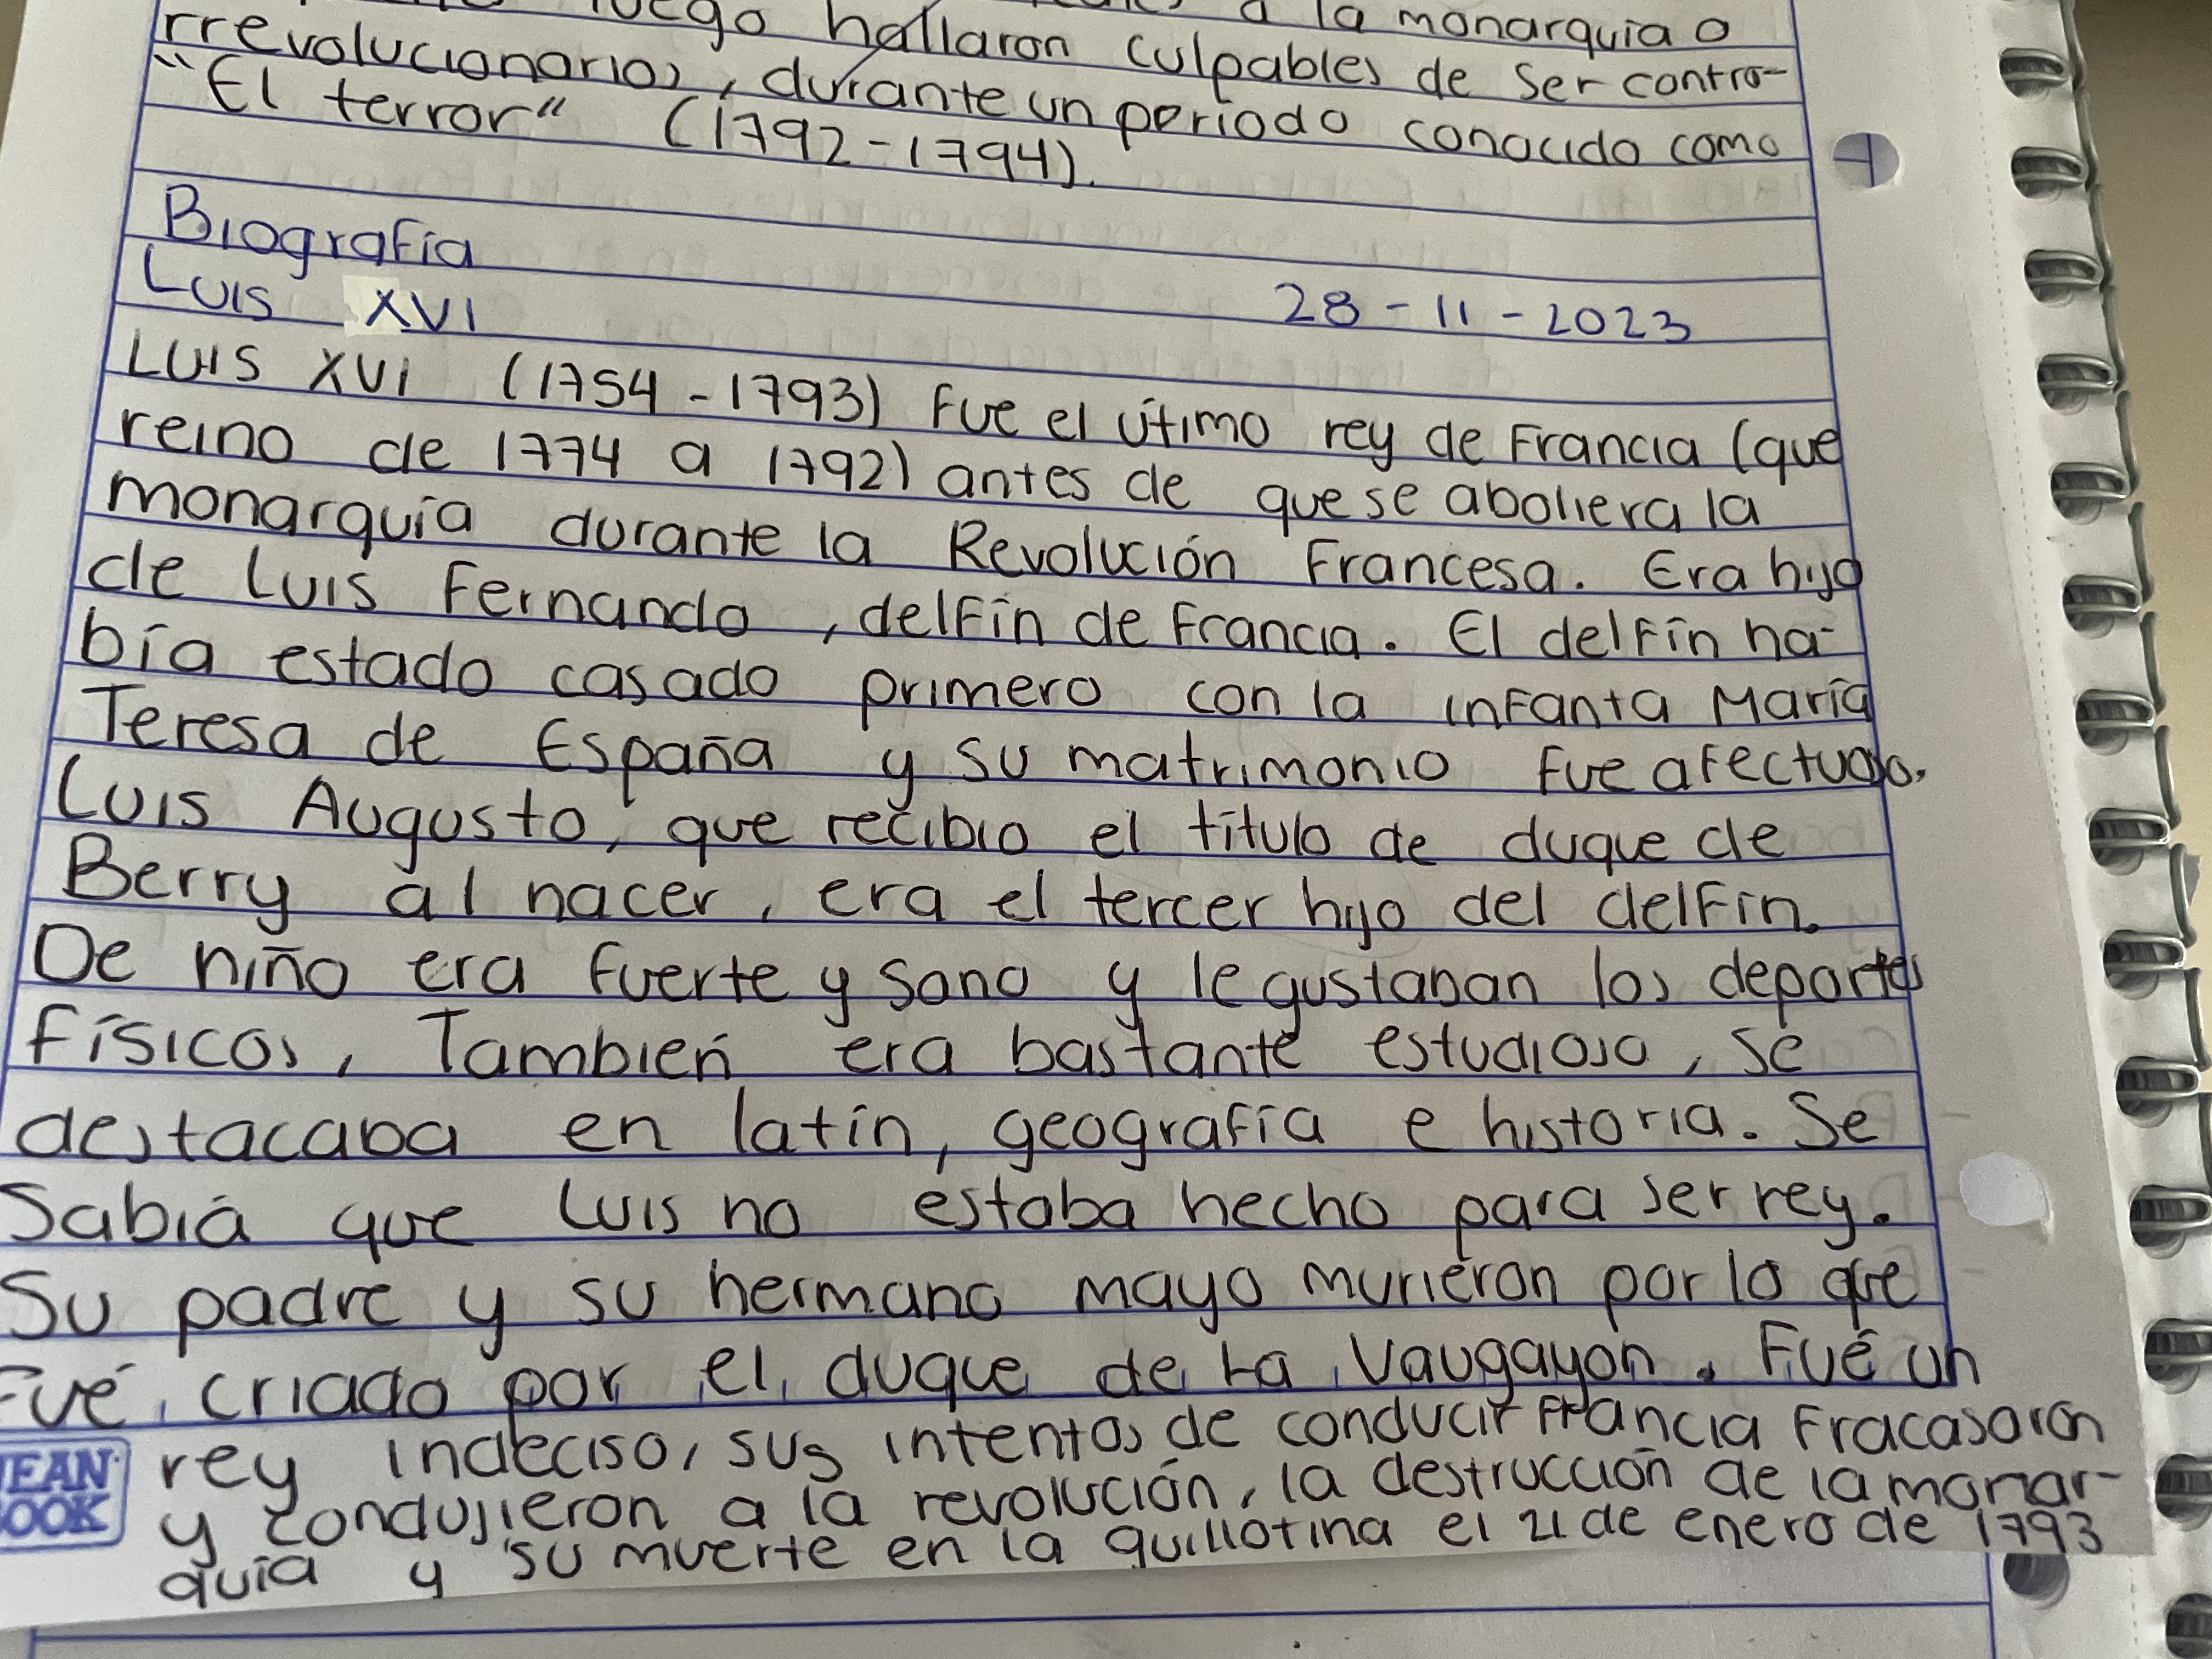 luego hallaron culpables de ser contra-
a la monarquía o
rrevolucionarios, durante un período conocido como
"El terror" (1792-1794).
Biografía
Luis XVI
28-11-2023
Luis XVI (1754-1793) Fue el útimo rey de Francia (que
reino de 1774 a 1792) antes de que se aboliera la
monarquía durante la Revolución Francesa. Era hijo
de Luis Fernando, delfín de Francia. El delfín ha-
bía estado casado primero con la infanta María
Teresa de España y su matrimonio fue afectuoso.
Luis Augusto, que recibio el título de duque de
Berry al nacer, era el tercer hijo del delfín.
De niño era fuerte y sano y le gustaban los deportes
físicos, Tambień era bastante estudioso, se
destacaba en latín, geografía e historia. Se
Sabiá que Luis no estaba hecho para ser rey.
Su padre y su hermano mayo murieron por lo que
Fué criado por el duque de La Vaugayon. Fué un
rey indeciso, sus intentos de conducir Francia Fracasaron
y condujieron a la revolución, la destrucción de la monar-
quía y su muerte en la guillotina el 21 de enero de 1793
EAN
OOK